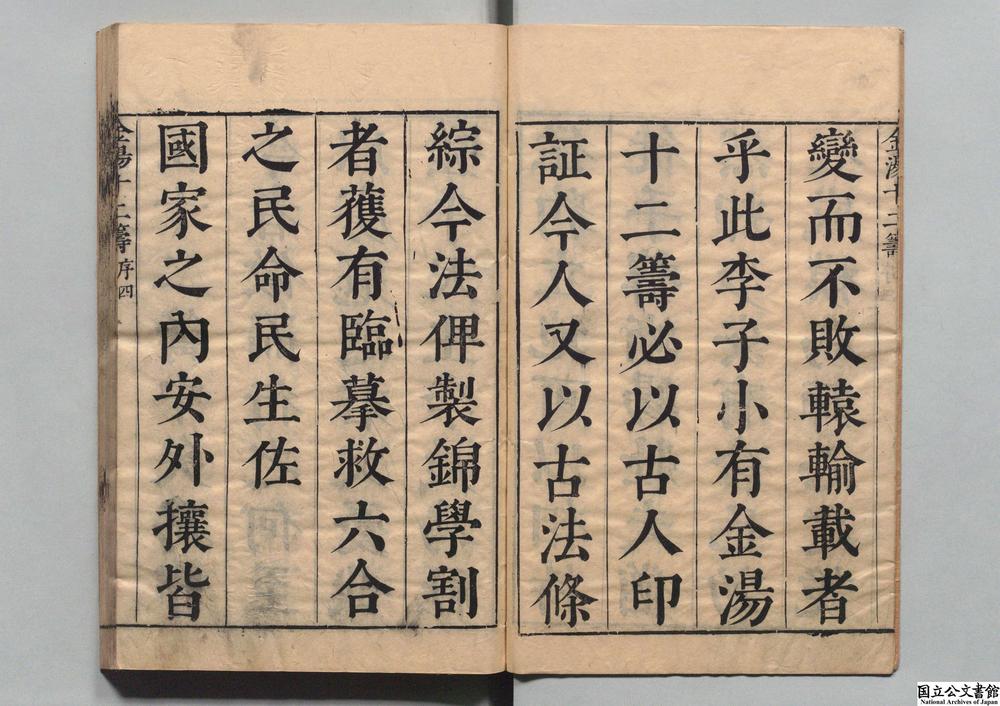 金湯十二籌
變而不敗轅輸載者
乎此李子小有金湯
十二籌必以古人印
証今人又以古法條
綜今法俾製錦學割
者蒦有臨摹救六合
之民命民生佐
國家之內安外攘皆
金湯十二籌 序 四
国立公文書館
National Archives of Japan